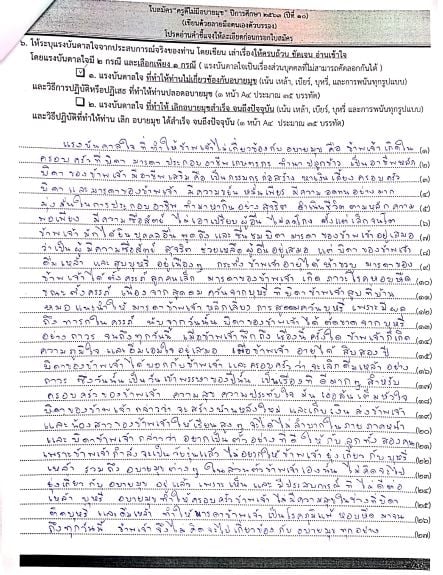 ใบสมัคร "ครูดีไม่มีอบายมุข" ปีการศึกษา ๒๕๖๓ (ปีที่ ๑๐)
(เขียนด้วยลายมือตนเองตัวบรรจง)
โปรดอ่านคำชี้แจงให้ละเอียดก่อนกรอกใบสมัคร
๖. ให้ระบุแรงบันดาลใจจากประสบการณ์จริงของท่าน โดยเขียน เล่าเรื่องให้ครบถ้วน ชัดเจน อ่านเข้าใจ
โดยแรงบันดาลใจมี ๒ กรณี และเลือกเพียง ๑ กรณี (แรงบันดาลใจเป็นเรื่องส่วนบุคคลที่ไม่สามารถคัดลอกกันได้)
๑. แรงบันดาลใจ ที่ทำให้ท่านไม่เกี่ยวข้องกับอบายมุข (เน้น เหล้า, เบียร์, บุหรี่, และการพนันทุกรูปแบบ)
และวิธีการปฏิบัติหรือปฏิเสธ ที่ทำให้ท่านปลอดอบายมุข (๑ หน้า A๔ ประมาณ ๓๕ บรรทัด)
๒. แรงบันดาลใจ ที่ทำให้ เลิกอบายมุขสำเร็จ จนถึงปัจจุบัน (เน้น เหล้า, เบียร์, บุหรี่, และการพนันทุกรูปแบบ)
และวิธีปฏิบัติที่ทำให้ท่าน เลิก อบายมุข ได้สำเร็จ จนถึงปัจจุบัน (๑ หน้า A๔ ประมาณ ๓๕ บรรทัด)
แรงบันดาลใจ ที่ ทำให้ ข้าพเจ้าไม่เกี่ยวข้องกับ อบายมุข คือ ข้าพเจ้า เกิดใน (๑)
ครอบครัวที่ บิดา มารดา ประกอบอาชีพ เกษตรกร ทำนา ปลูกข้าว เป็น อาชีพหลัก (๒)
บิดา ของข้าพเจ้า มีอาชีพเสริม คือ เป็นกรรมกรก่อสร้าง หาเงินเลี้ยง ครอบครัว (๓)
บิดา และ มารดาของข้าพเจ้า มีความขยันหมั่นเพียร มีความอดทนอย่างมาก (๔)
มุ่งมั่นในการประกอบอาชีพ ทำมาหากิน อย่าง สุจริต ดำเนินชีวิตตามหลัก ความ (๕)
พอเพียง มีความซื่อสัตย์ ไม่เอาเปรียบผู้อื่น ตั้งแต่เล็กจนโต (๖)
ข้าพเจ้า มักได้ยินบุคคลอื่น พูดถึง และ ชื่นชมบิดา มารดา ของข้าพเจ้าอยู่เสมอ (๗)
ว่าเป็นผู้มีความซื่อสัตย์ สุจริต ช่วยเหลือผู้อื่นอยู่เสมอ แต่ บิดาของข้าพเจ้า (๘)
ดื่มเหล้า และ สูบบุหรี่ อยู่เนืองๆ กระทั่ง ข้าพเจ้าอายุได้ ห้าขวบ มารดาของ (๙)
ข้าพเจ้าได้ตั้งครรภ์ ลูกคนเล็ก มารดาของข้าพเจ้า เกิด ภาวะโรคหอบหืด (๑๐)
ขณะตั้งครรภ์ เนื่องจากสูดดมควันจากบุหรี่ ที่ บิดาข้าพเจ้าสูบที่บ้าน (๑๑)
หมอแนะนำให้ มารดาข้าพเจ้า หลีกเลี่ยง การสูดดมควันบุหรี่ เพราะมีผล (๑๒)
ถึง ทารกในครรภ์ นับจากวันนั้น บิดาของข้าพเจ้าได้ ตัดขาดจากบุหรี่ (๑๓)
อย่างถาวร จนถึงทุกวันนี้ เมื่อข้าพเจ้านึกถึง เรื่องนี้ ครั้งใด ข้าพเจ้าก็เกิด (๑๔)
ความภูมิใจ และ อิ่มเอมใจอยู่เสมอ เมื่อข้าพเจ้า อายุได้ สิบสองปี (๑๕)
บิดาของข้าพเจ้าได้บอกกับข้าพเจ้า และครอบครัวว่า จะเลิกดื่มเหล้า อย่าง (๑๖)
ถาวร ซึ่งวันนั้นเป็นวันเข้าพรรษาของปีนั้น เป็นเรื่องที่ดีมากๆ สำหรับ (๑๗)
ครอบครัวของข้าพเจ้า ความสุข ความประทับใจ (๑๘)
บิดาของข้าพเจ้า กล่าวว่า จะสร้างบ้านหลังใหม่ และเก็บเงิน ส่งข้าพเจ้า (๑๙)
และน้องสาวของข้าพเจ้าให้เรียนสูงๆ จะได้ไม่ลำบากใน ภายภาคหน้า (๒๐)
และ บิดาข้าพเจ้า กล่าวว่า อยากเป็นตัวอย่างที่ดีให้กับลูกทั้งสองคน (๒๑)
เพราะข้าพเจ้ากำลังจะเป็นวัยรุ่นแล้ว ไม่อยากให้ข้าพเจ้า ยุ่งเกี่ยว กับ บุหรี่ (๒๒)
เหล้า รวมถึง อบายมุขต่างๆ ข้าพเจ้าเองนั้น ไม่คิดจะไป (๒๓)
ยุ่งเกี่ยว กับ อบายมุข อยู่แล้ว เพราะ เห็น และ มีประสบการณ์ ที่ ไม่ดีต่อ (๒๔)
เหล้า บุหรี่ อบายมุขทำให้ครอบครัวข้าพเจ้า ไม่มีความสุขในช่วงที่บิดา (๒๕)
ติดบุหรี่ และดื่มเหล้า ทำให้มารดาข้าพเจ้า เป็นโรคภูมิแพ้ หอบหืด มาจน (๒๖)
ถึงทุกวันนี้ ข้าพเจ้า จึงไม่คิดจะไปเกี่ยวข้องกับ อบายมุขทุกอย่าง (๒๗)